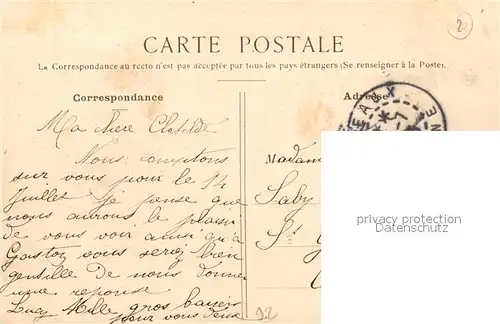 20
CARTE POSTALE
La Correspondance au recto n'est pas acceptée par tous les pays étrangers (Se renseigner à la Poste).
Correspondance
Adresse
Ma chere Clotilde
Nous comptons
sur vous pour le 14
juillet je pense que
nous aurons le plaisir
de vous voir ainsi qu'à
Gaston vous seriez bien
gentille de nous donner
une reponse
Lucy Mlle gros baisers
pour vous deux
Madam
Saby
St
92
privacy protection
Datenschutz